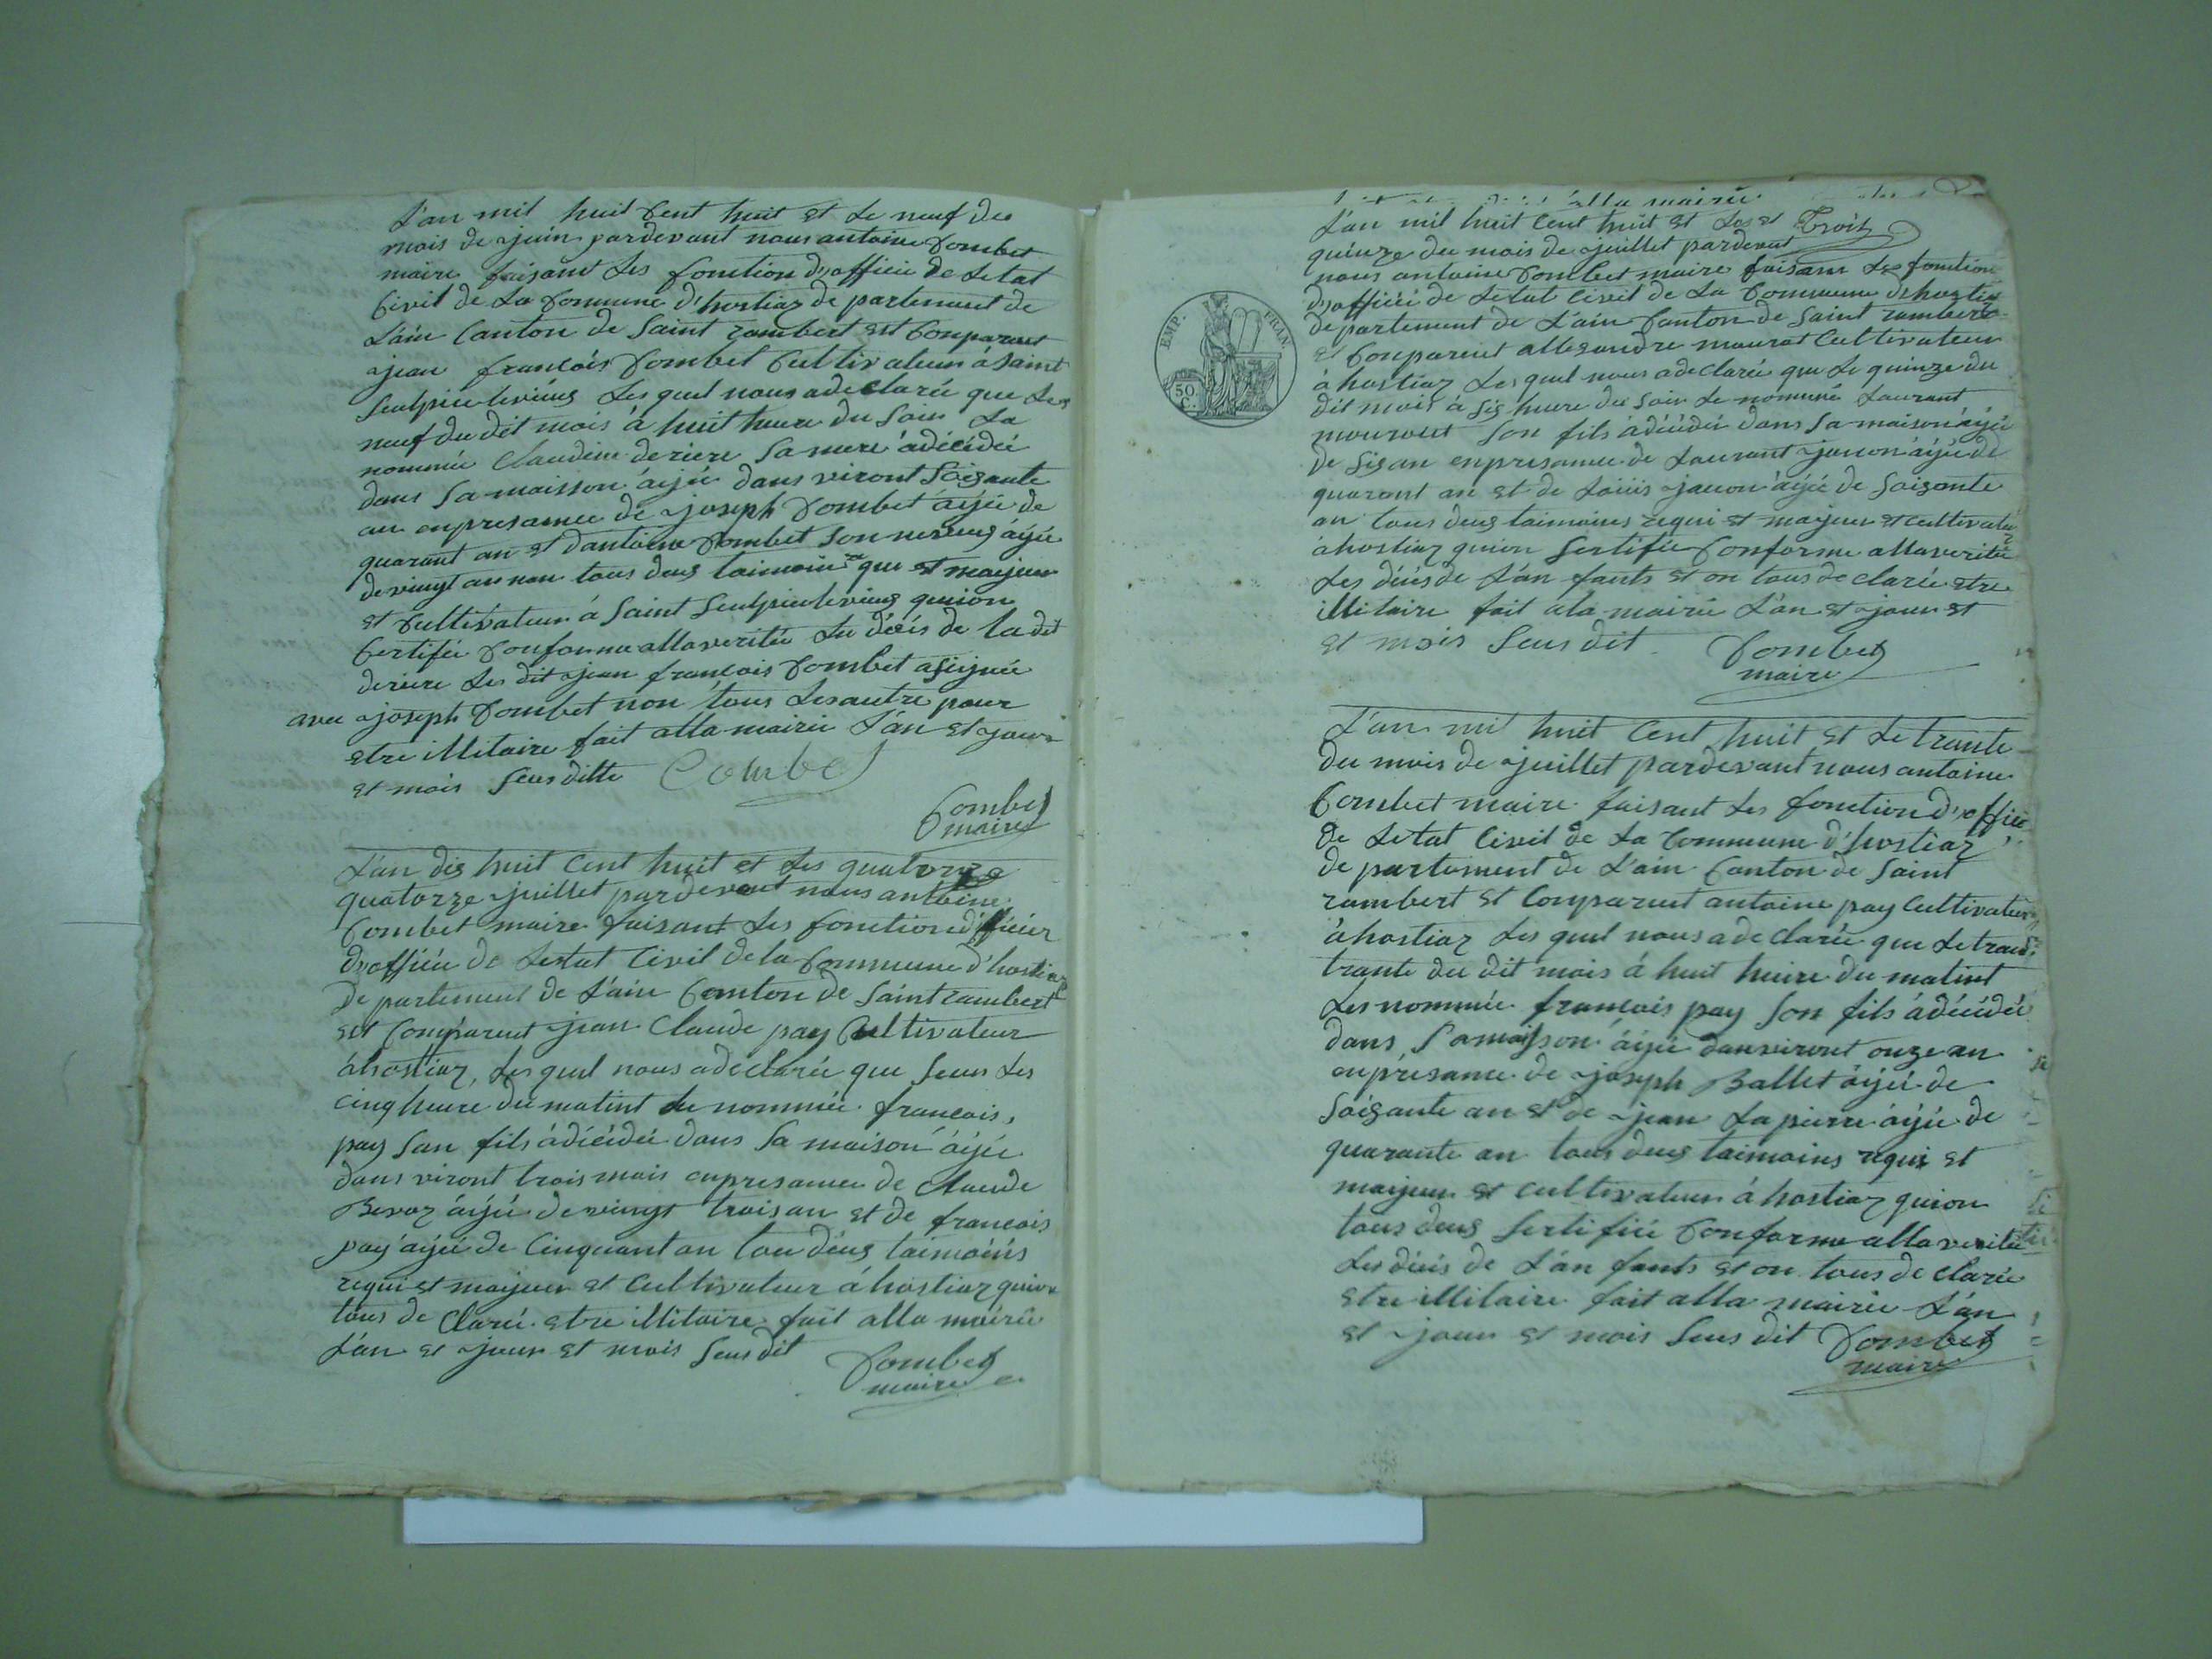 L'an mil huit Cent huit et Le neuf du
mois de juin pardevant nous antoine Combet
maire faisant Les fonction d'officié de Letat
Civil de La Commune d'hostiaz departement de
L'ain Canton de Saint rambert est Conparut
jean francois Combet Cultivateur à Saint
Sulpice levieus Les quel nous adeclarée que Les
neuf du dit mois à huit heure du Soir La
nommée Claudine deriere Sa mere àdécédée
dans Sa maisson àijée dans viront Soisante
an enpresamce de joseph Combet àijée de
quarant an et dantoine Combet Son neveus àijée
de vingt an tous deus taimoins que et majeur
et Cultivateur à Saint Sulpice levieus quion
Certifée Conforme allaveritée du décés de la dit
deriere Les dit jean francois Combet asignée
avec joseph Combet non tous Lesautre pour
etre illitaire fait alla mairie L'an et jour
et mois Seus ditte Combet
Combet
maire
L'an dis huit Cent huit et Les quatorze
quatorze juillet pardevant nous antoine
Combet maire faisant Les fonction
d'officié de Letat Civil de la Commune d'hostiaz
departement de L'ain Canton de Saint rambert
est Conparut jean Claude pay Cultivateur
àhostiaz, Les quel nous adeclarée que Seur Les
cinq heure du matint Le nommée francois
pay Son fils àdécédée dans Sa maison àijée
dans viront trois mois enpresamce de Claude
Bevoz àijée de vingt trois an et de francois
pay àijée de Cinquant an tou deus taimoins
requi et majeur et Cultivateur à hostiaz quion
tous de Clarée etre illitaire fait alla mairie
L'an et jour et mois Seus dit
Combet
maire
alla mairie
L'an mil huit Cent huit et Les et Trois
quinze du mois de juillet pardevant
nous antoine Combet maire faisant Les fonction
d'officié de Letat Civil de La Commune d'hostiaz
departement de L'ain Canton de Saint rambert
et Conparut allesandre mourat Cultivateur
à hostiaz Les quel nous adeclarée que Le quinze du
dit mois à sis heure du Soir Le nommée Laurant
mourout Son fils àdécédée dans Sa maison àijée
de Sis an enpresamce de Laurant janon àijée de
quarant an et de Loiis janon àijée de Soisante
an tous deus taimoins requi et majeur et cultivateur
àhostiaz quion Sertifée Conforme allaveritée
Les décés de L'an fants et on tous de clarée etre
illitaire fait ala mairie L'an et jour et
et mois Seus dit Combet
maire
EMP. FRAN
50
C.
L'an mil huit Cent huit et Le trante
du mois de juillet pardevant nous antoine
Combet maire faisant Les fonction d'officié
de Letat Civil de La Commune d'hostiaz
departement de L'ain Canton de Saint
rambert et Conparut antoine pay Cultivateur
àhostiaz Les quel nous adeclarée que Le trant
trante du dit mois à huit heure du matint
Les nommée francois pay Son fils àdécédée
dans Samaisson àijée dans viront onze an
enpresamce de joseph Ballet àijée de
Soisante an et de jean Lapierre àijée de
quarante an tous deus taimoins requi et
majeur et cultivateur à hostiaz quion
tous deus Sertifiée Conforme alla veritée
Les décés de L'an fants et on tous de clarée
etre illitaire fait alla mairie L'an
et jour et mois Seus dit Combet
maire